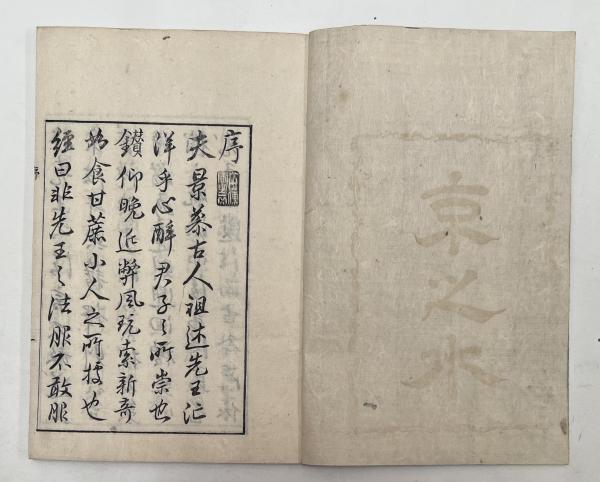 京之水
序
夫景慕古人祖述先王汒
洋乎心醉君子之所崇也
鑚仰晩近弊風玩索新奇
食甘蔗小人之所也
經曰非先王之法服不敢服
序